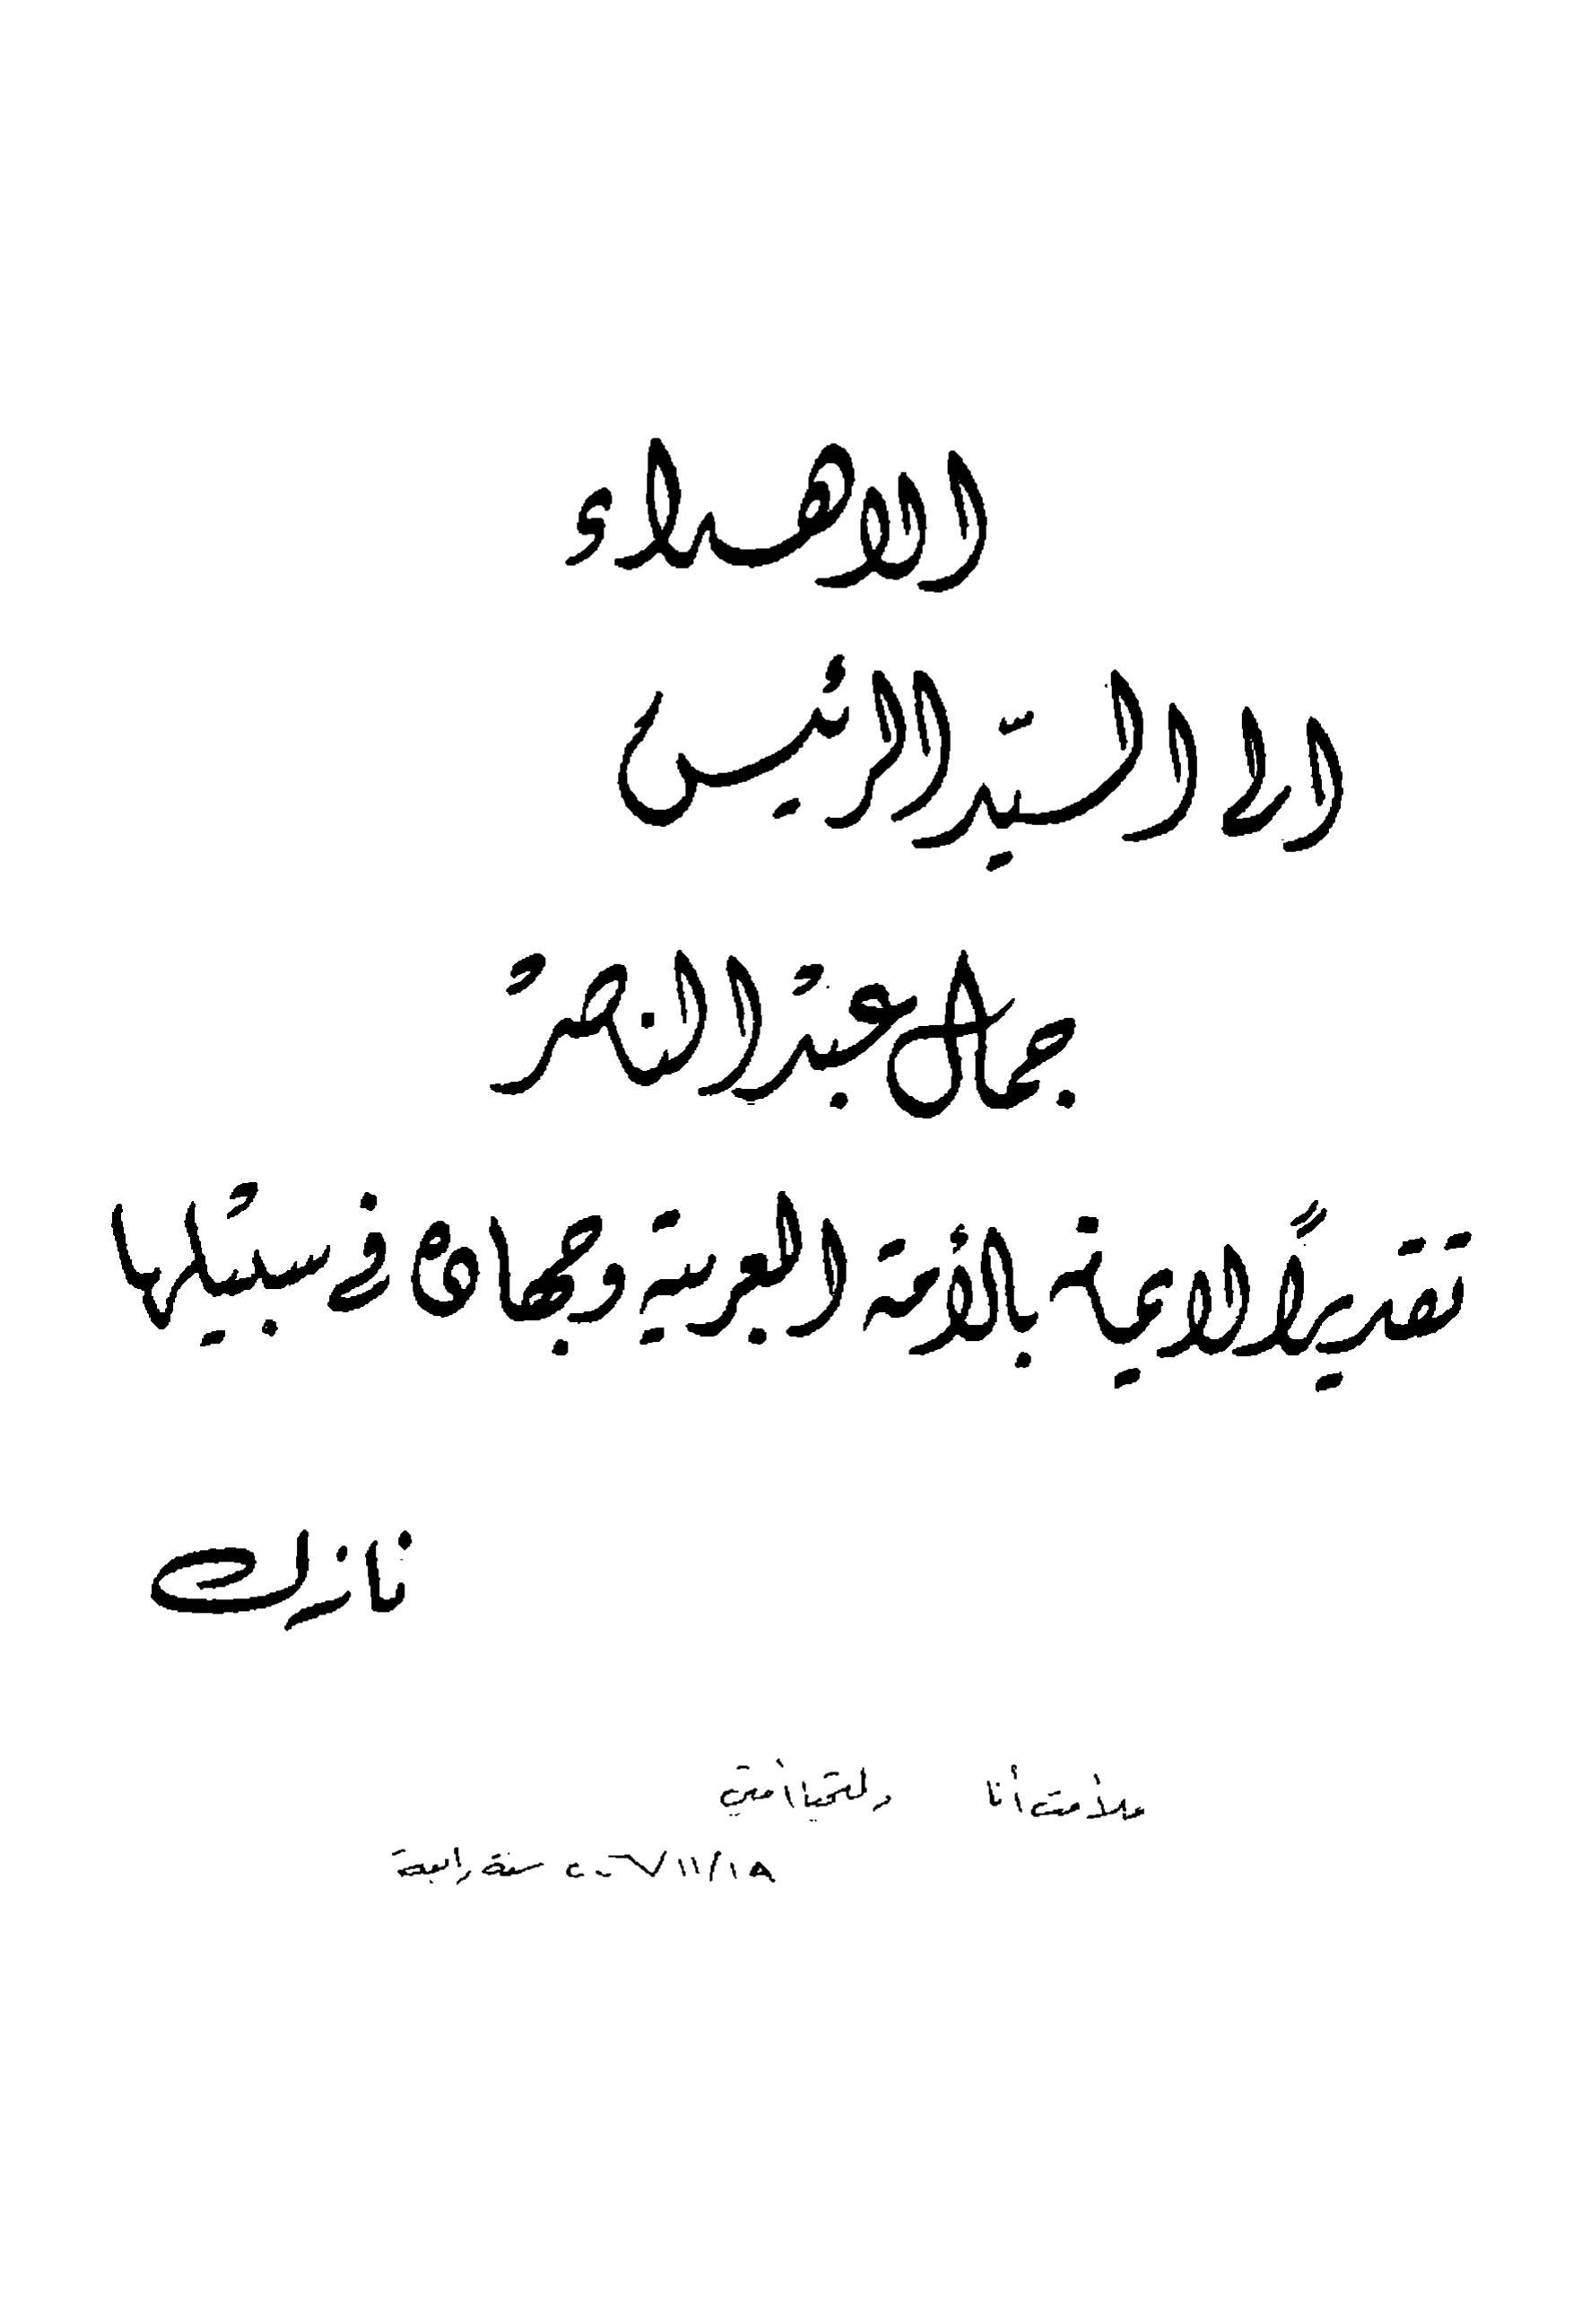 الاهداء
الى السيّد الرئيس
جمال عبد الناصر
تقديرًا لايمانه بالأمة العربية وجهاده في سبيلها
نازك
أنا
سنة رابعة